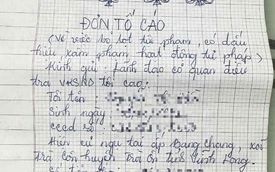 ĐƠN TỐ CÁO
(Về việc bỏ lọt tội phạm, có dấu
hiệu xâm phạm hoạt động tư pháp)
Kính gửi: Lãnh đạo cơ quan điều
tra VKSND tối cao.
Tôi tên:
Sinh ngày
cccd số
Hiện cư ngụ tại ấp Giang chang, xã
Trà Côn huyện Trà Ôn tỉnh Vĩnh Long.